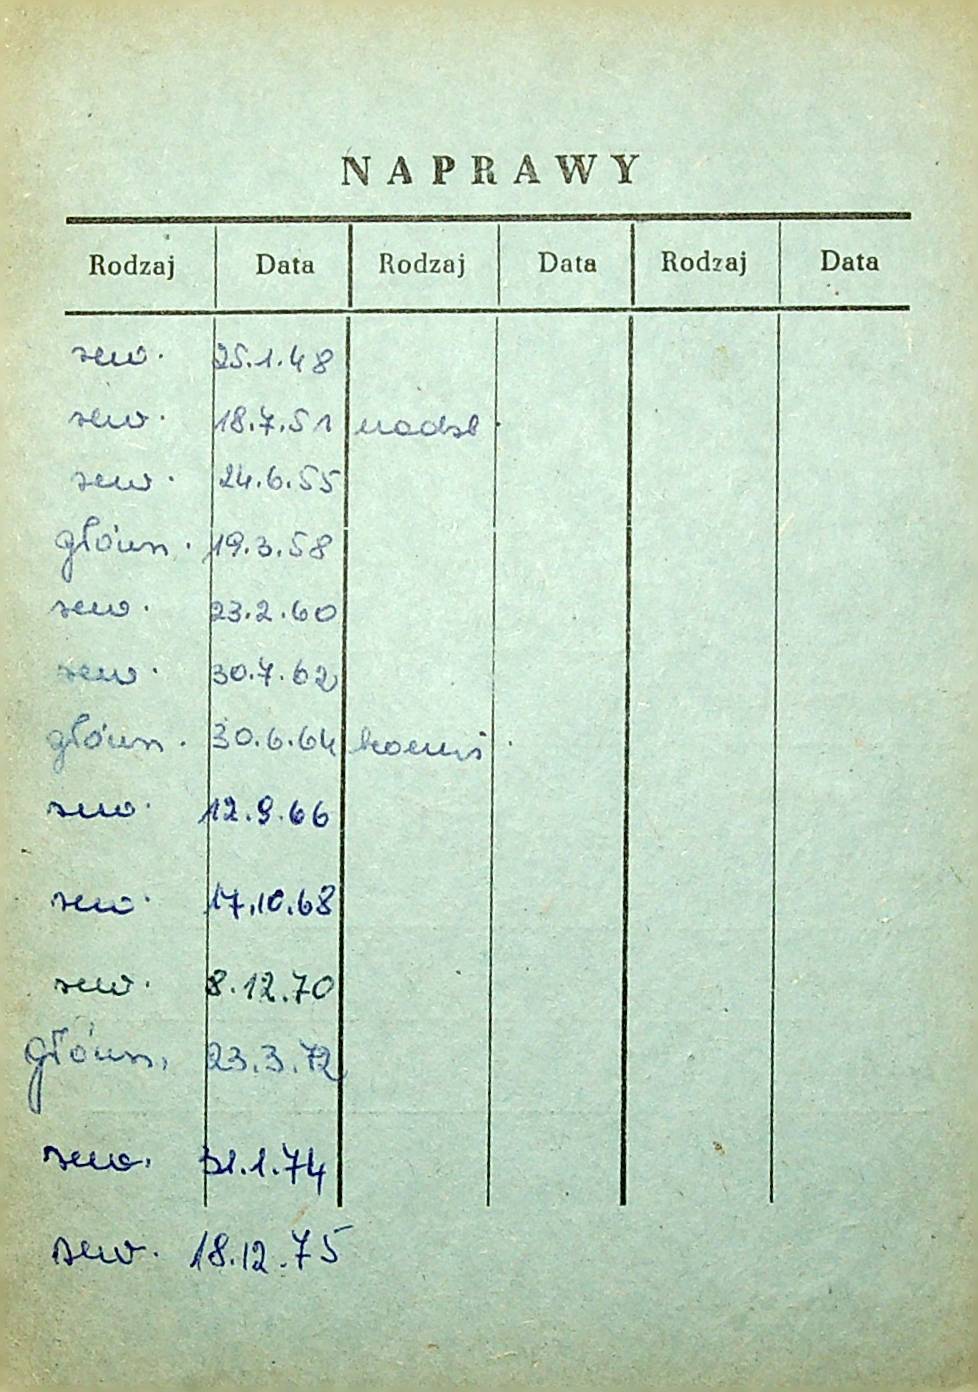 NAPRAWY
Rodzaj Data Rodzaj Data Rodzaj Data
rew. 25.1.48
rew. 18.7.51 nadzl.
rew. 24.6.55
główn. 19.3.58
rew. 23.2.60
rew. 30.7.62
główn. 30.6.64
rew. 12.9.66
rew. 17.10.68
rew. 8.12.70
główn. 23.3.72
rew. 31.1.74
rew. 18.12.75